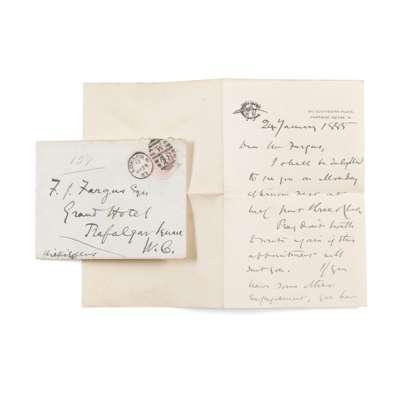 24 January 1885
Dear Mr Fargus,
I shall be delighted
to see you on Monday
afternoon next at
half past three o'clock
Pray don't
to write again if this
appointment will
suit you. If you
have some other
engagement, you have
159
F. J. Fargus Esq
Grand Hotel
Trafalgar Square
W.C.